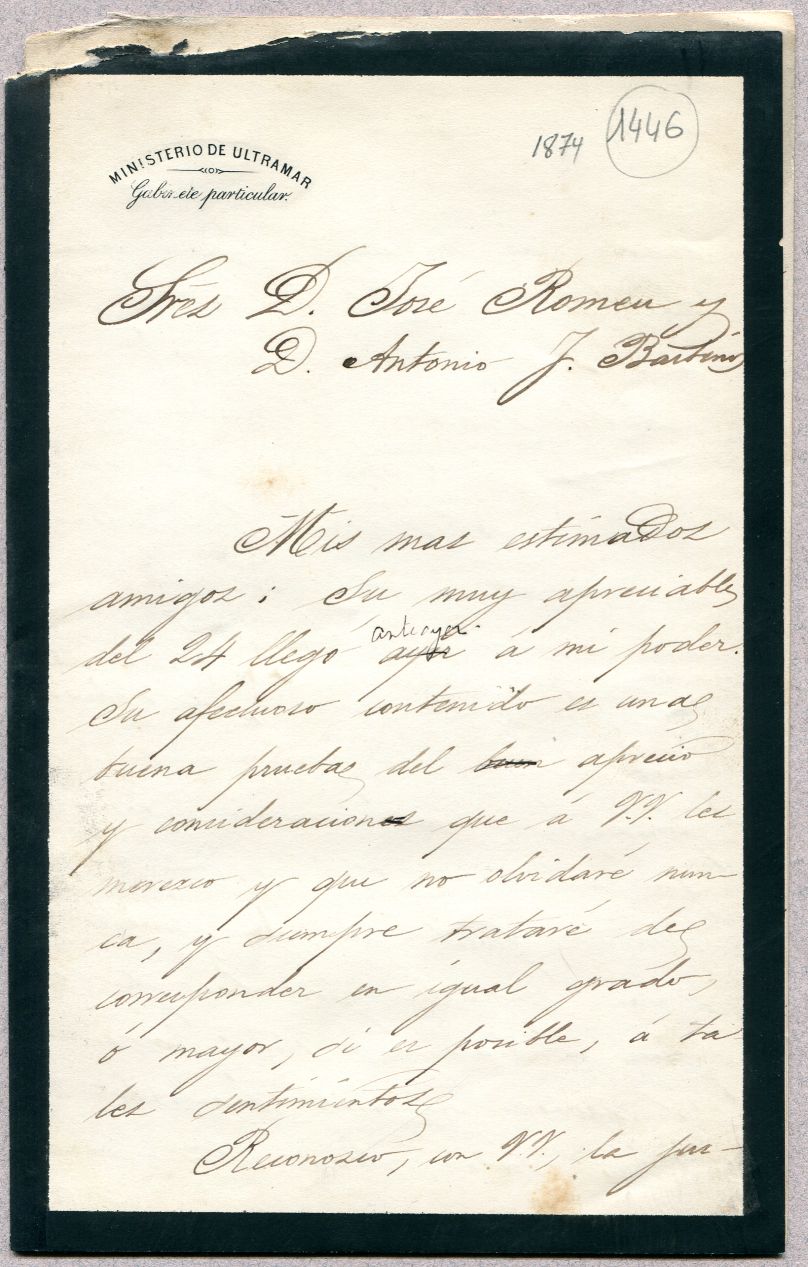 1874 1446
MINISTERIO DE ULTRAMAR
Gabinete particular.
Srés D. José Romeu y
D. Antonio J.
Mis mas estimados
amigos: Su muy apreciable
del 24 llegó ayer antiayer á mi poder.
Su afectuoso contenido es una
buena prueba del buen aprecio
y consideraciones que á V.V. les
merezco y que no olvidaré nun-
ca, y siempre trataré de
corresponder en igual grado,
ó mayor, si es posible, á ta
les sentimientos
Reconozco, con V.V., la jus-